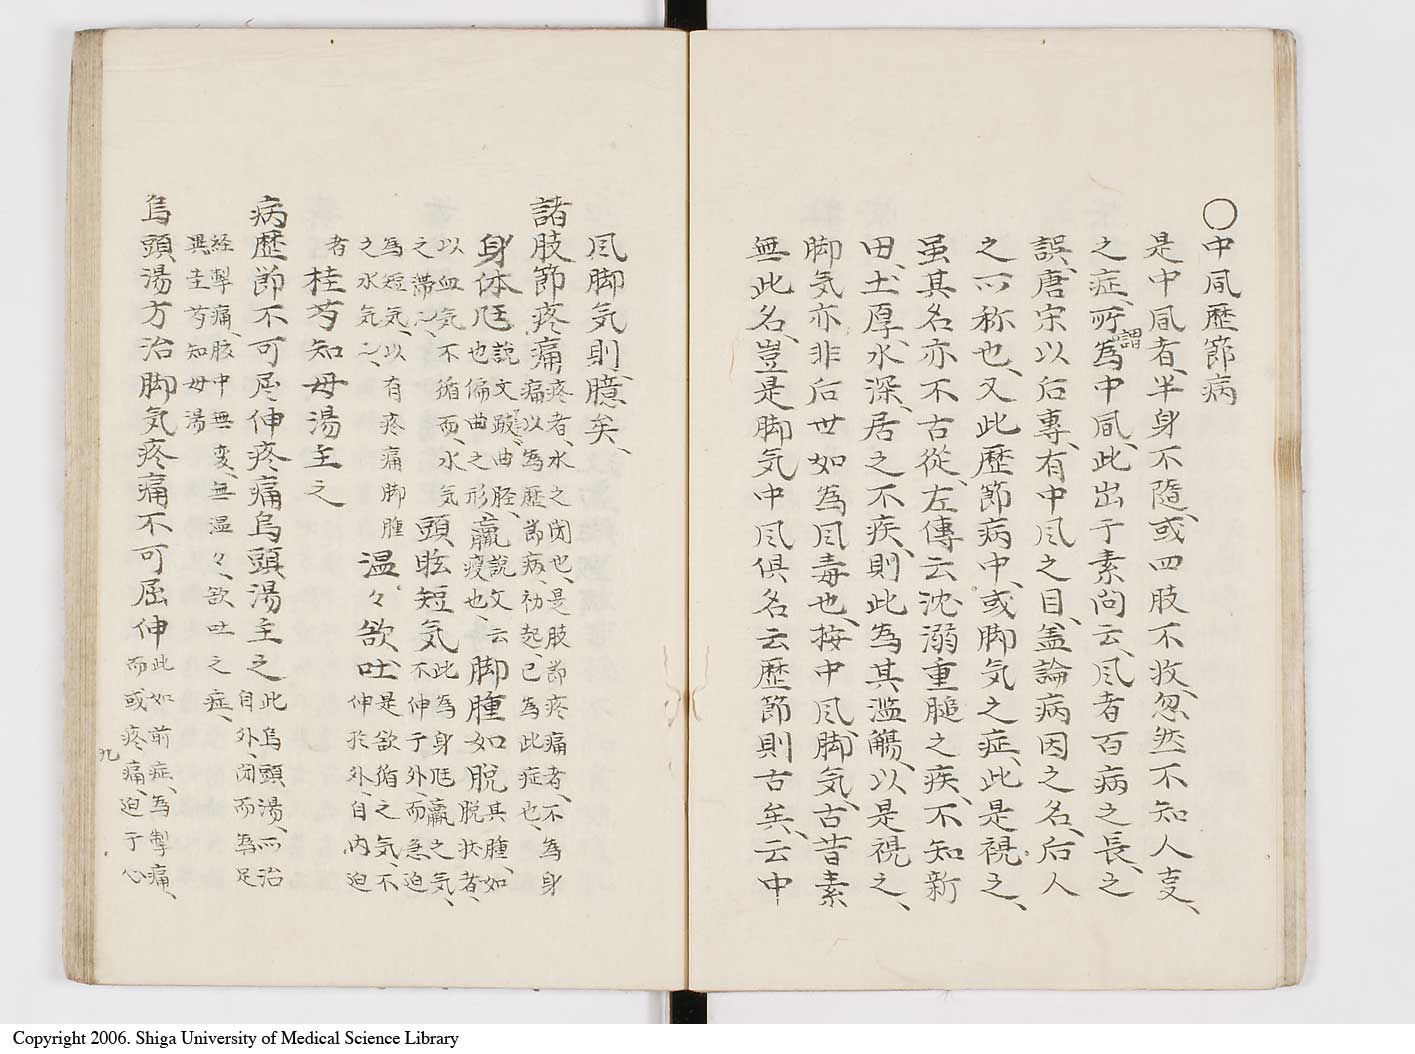 〇中凬歴節病
是中凬者、半身不隨、或四肢不收、忽然不知人叓、
之症、所謂為中凬、此出于素问云、凬者百病之長、之
誤、唐宋以后專、有中凬之目、盖論病因之名、后人
之所称也、又此歴節病中、或脚气之症、此是視之、
虽其名亦不古從、左傳云沈溺重膇之疾、不知新
田、土厚、水深、居之不疾、則此為其滥觴、以是視之、
脚气亦非后世如為凬毒也、按中凬、脚气、古昔素
無此名、豈是脚气中凬倶名云歴節則古矣、云中
凬脚气則、臆矣、
諸肢節疼痛疼者、水之闭也、是肢節疼痛者、不為身
痛、以為歴節病初起、已為此症也、
身体尫説文䟴、曲胫、
也偏曲之形羸説文云
疲也、脚腫如脱其腫、如
脱状者、
以血气不循而、水气
之滞之、頭眩短气此為身尫羸之气、
不伸于外、而急迫
為短气、以有疼痛脚腫
之水气之、温々欲吐是欲循之气不
伸於外、自内迫
者桂芍知母湯主之
病歴節不可屈伸疼痛烏頭湯主之此烏頭湯、所治
自外、闭而為足
経掣痛、肢中無变、無温々、欲吐之症、
異圭芍知母湯
烏頭湯方治脚气疼痛不可屈伸此如前症、為掣痛、
而或疼痛、迫于心
九
Copyright 2006. Shiga University of Medical Science Library